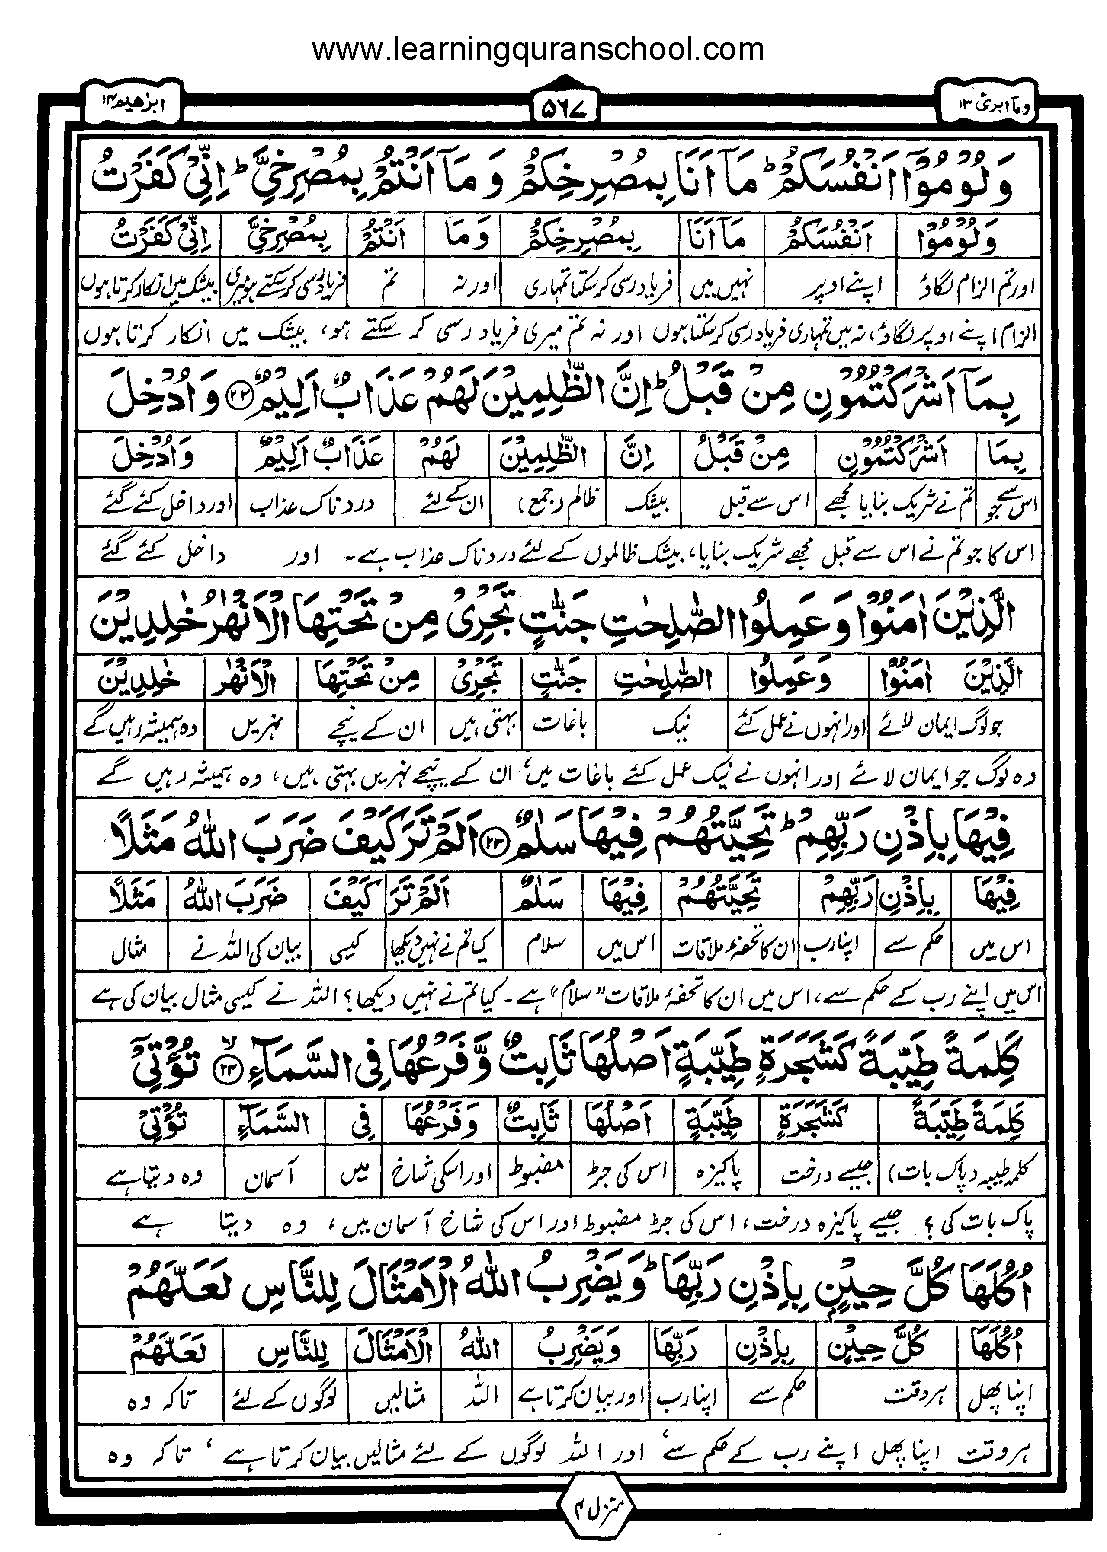 www.learningquranschool.com
ومآ ابرئ ۱۳ ۵۶۷ ابرٰهيم ۱۴
وَلُوْمُوْٓا اَنْفُسَكُمْ ؕ مَآ اَنَا بِمُصْرِخِكُمْ وَ مَآ اَنْتُمْ بِمُصْرِخِيَّ ؕ اِنِّيْ كَفَرْتُ
وَلُوْمُوْٓا اَنْفُسَكُمْ مَآ اَنَا بِمُصْرِخِكُمْ وَ مَآ اَنْتُمْ بِمُصْرِخِيَّ اِنِّيْ كَفَرْتُ
اور تم الزام لگاؤ اپنے اوپر نہیں میں فریاد رسی کر سکتا تمہاری اور نہ تم فریاد رسی کر سکتے ہو میری بیشک میں انکار کرتا ہوں
الزام اپنے اوپر لگاؤ، نہ میں تمہاری فریاد رسی کر سکتا ہوں اور نہ تم میری فریاد رسی کر سکتے ہو، بیشک میں انکار کرتا ہوں
بِمَآ اَشْرَكْتُمُوْنِ مِنْ قَبْلُ ؕ اِنَّ الظّٰلِمِيْنَ لَهُمْ عَذَابٌ اَلِيْمٌ ۲۲ وَ اُدْخِلَ
بِمَآ اَشْرَكْتُمُوْنِ مِنْ قَبْلُ اِنَّ الظّٰلِمِيْنَ لَهُمْ عَذَابٌ اَلِيْمٌ وَ اُدْخِلَ
اس سے جو تم نے شریک بنایا مجھے اس سے قبل بیشک ظالم (جمع) ان کے لئے دردناک عذاب اور داخل کئے گئے
اس کا جو تم نے اس سے قبل مجھے شریک بنایا، بیشک ظالموں کے لئے دردناک عذاب ہے۔ اور داخل کئے گئے
الَّذِيْنَ اٰمَنُوْا وَ عَمِلُوا الصّٰلِحٰتِ جَنّٰتٍ تَجْرِيْ مِنْ تَحْتِهَا الْاَنْهٰرُ خٰلِدِيْنَ
الَّذِيْنَ اٰمَنُوْا وَ عَمِلُوا الصّٰلِحٰتِ جَنّٰتٍ تَجْرِيْ مِنْ تَحْتِهَا الْاَنْهٰرُ خٰلِدِيْنَ
جو لوگ ایمان لائے اور انہوں نے عمل کئے نیک باغات بہتی ہیں ان کے نیچے نہریں وہ ہمیشہ رہیں گے
وہ لوگ جو ایمان لائے اور انہوں نے نیک عمل کئے باغات میں، ان کے نیچے نہریں بہتی ہیں، وہ ہمیشہ رہیں گے
فِيْهَا بِاِذْنِ رَبِّهِمْ ؕ تَحِيَّتُهُمْ فِيْهَا سَلٰمٌ ۲۳ اَلَمْ تَرَ كَيْفَ ضَرَبَ اللّٰهُ مَثَلًا
فِيْهَا بِاِذْنِ رَبِّهِمْ تَحِيَّتُهُمْ فِيْهَا سَلٰمٌ اَلَمْ تَرَ كَيْفَ ضَرَبَ اللّٰهُ مَثَلًا
اس میں حکم سے اپنا رب ان کا تحفۂ ملاقات اس میں سلام کیا تم نے نہیں دیکھا کیسی بیان کی اللہ نے مثال
اس میں اپنے رب کے حکم سے، اس میں ان کا تحفۂ ملاقات "سلام" ہے۔ کیا تم نے نہیں دیکھا؟ اللہ نے کیسی مثال بیان کی ہے
كَلِمَةً طَيِّبَةً كَشَجَرَةٍ طَيِّبَةٍ اَصْلُهَا ثَابِتٌ وَّ فَرْعُهَا فِي السَّمَآءِ ۲۴ تُؤْتِيْٓ
كَلِمَةً طَيِّبَةً كَشَجَرَةٍ طَيِّبَةٍ اَصْلُهَا ثَابِتٌ وَ فَرْعُهَا فِي السَّمَآءِ تُؤْتِيْٓ
کلمہ طیبہ (پاک بات) جیسے درخت پاکیزہ اس کی جڑ مضبوط اور اسکی شاخ میں آسمان وہ دیتا ہے
پاک بات کی؟ جیسے پاکیزہ درخت، اس کی جڑ مضبوط اور اس کی شاخ آسمان میں، وہ دیتا ہے
اُكُلَهَا كُلَّ حِيْنٍۭ بِاِذْنِ رَبِّهَا ؕ وَ يَضْرِبُ اللّٰهُ الْاَمْثَالَ لِلنَّاسِ لَعَلَّهُمْ
اُكُلَهَا كُلَّ حِيْنٍ بِاِذْنِ رَبِّهَا وَ يَضْرِبُ اللّٰهُ الْاَمْثَالَ لِلنَّاسِ لَعَلَّهُمْ
اپنا پھل ہر وقت حکم سے اپنا رب اور بیان کرتا ہے اللہ مثالیں لوگوں کے لئے تاکہ وہ
ہر وقت اپنا پھل اپنے رب کے حکم سے، اور اللہ لوگوں کے لئے مثالیں بیان کرتا ہے، تاکہ وہ
منزل ۳